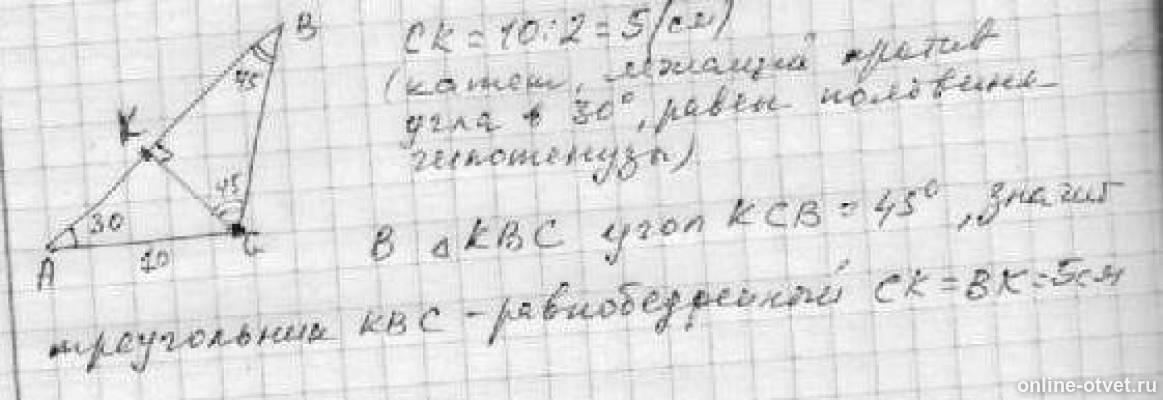 B
45
K
45
30
A
10
C
СК = 10:2 = 5 (см)
(катет, лежащий против
угла в 30°, равен половине
гипотенузы)
В △ KBC угол KCB = 45°, значит
треугольник KBC - равнобедренный CK = BK = 5см
online-otvet.ru